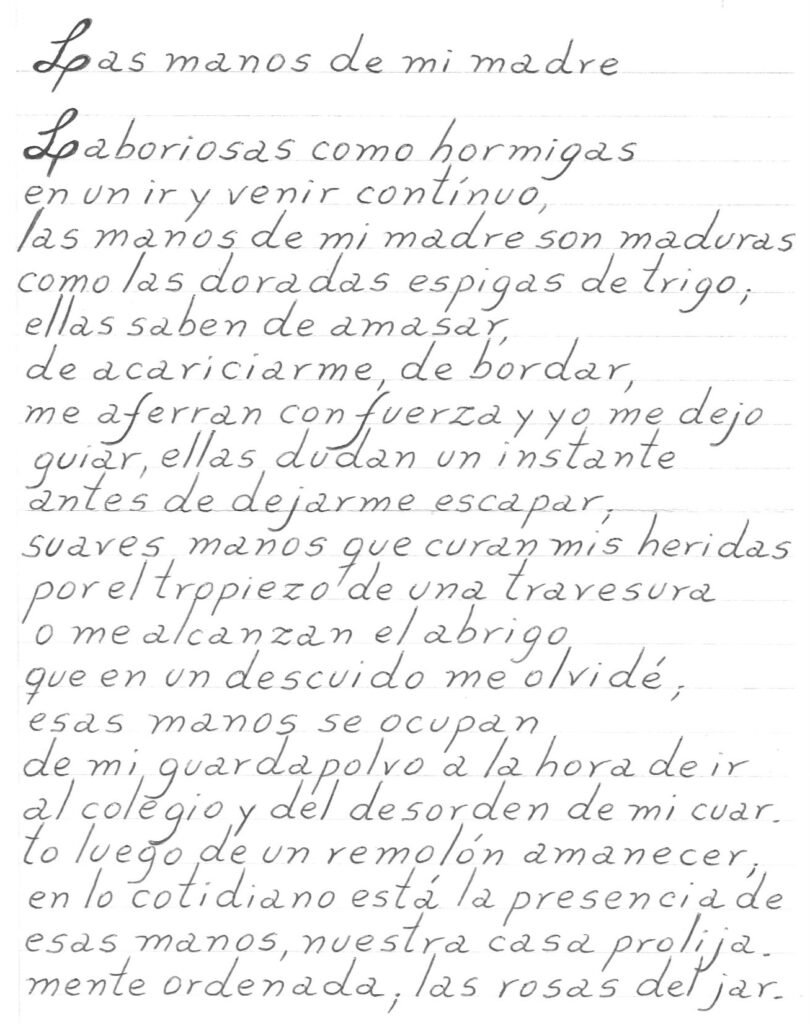 Las manos de mi madre
Laboriosas como hormigas
en un ir y venir contínuo,
las manos de mi madre son maduras
como las doradas espigas de trigo;
ellas saben de amasar,
de acariciarme, de bordar,
me aferran con fuerza y yo me dejo
guiar, ellas dudan un instante
antes de dejarme escapar;
suaves manos que curan mis heridas
por el tropiezo de una travesura
o me alcanzan el abrigo
que en un descuido me olvidé;
esas manos se ocupan
de mi guardapolvo a la hora de ir
al colegio y del desorden de mi cuar-
to luego de un remolón amanecer;
en lo cotidiano está la presencia de
esas manos, nuestra casa prolija-
mente ordenada; las rosas del jar-